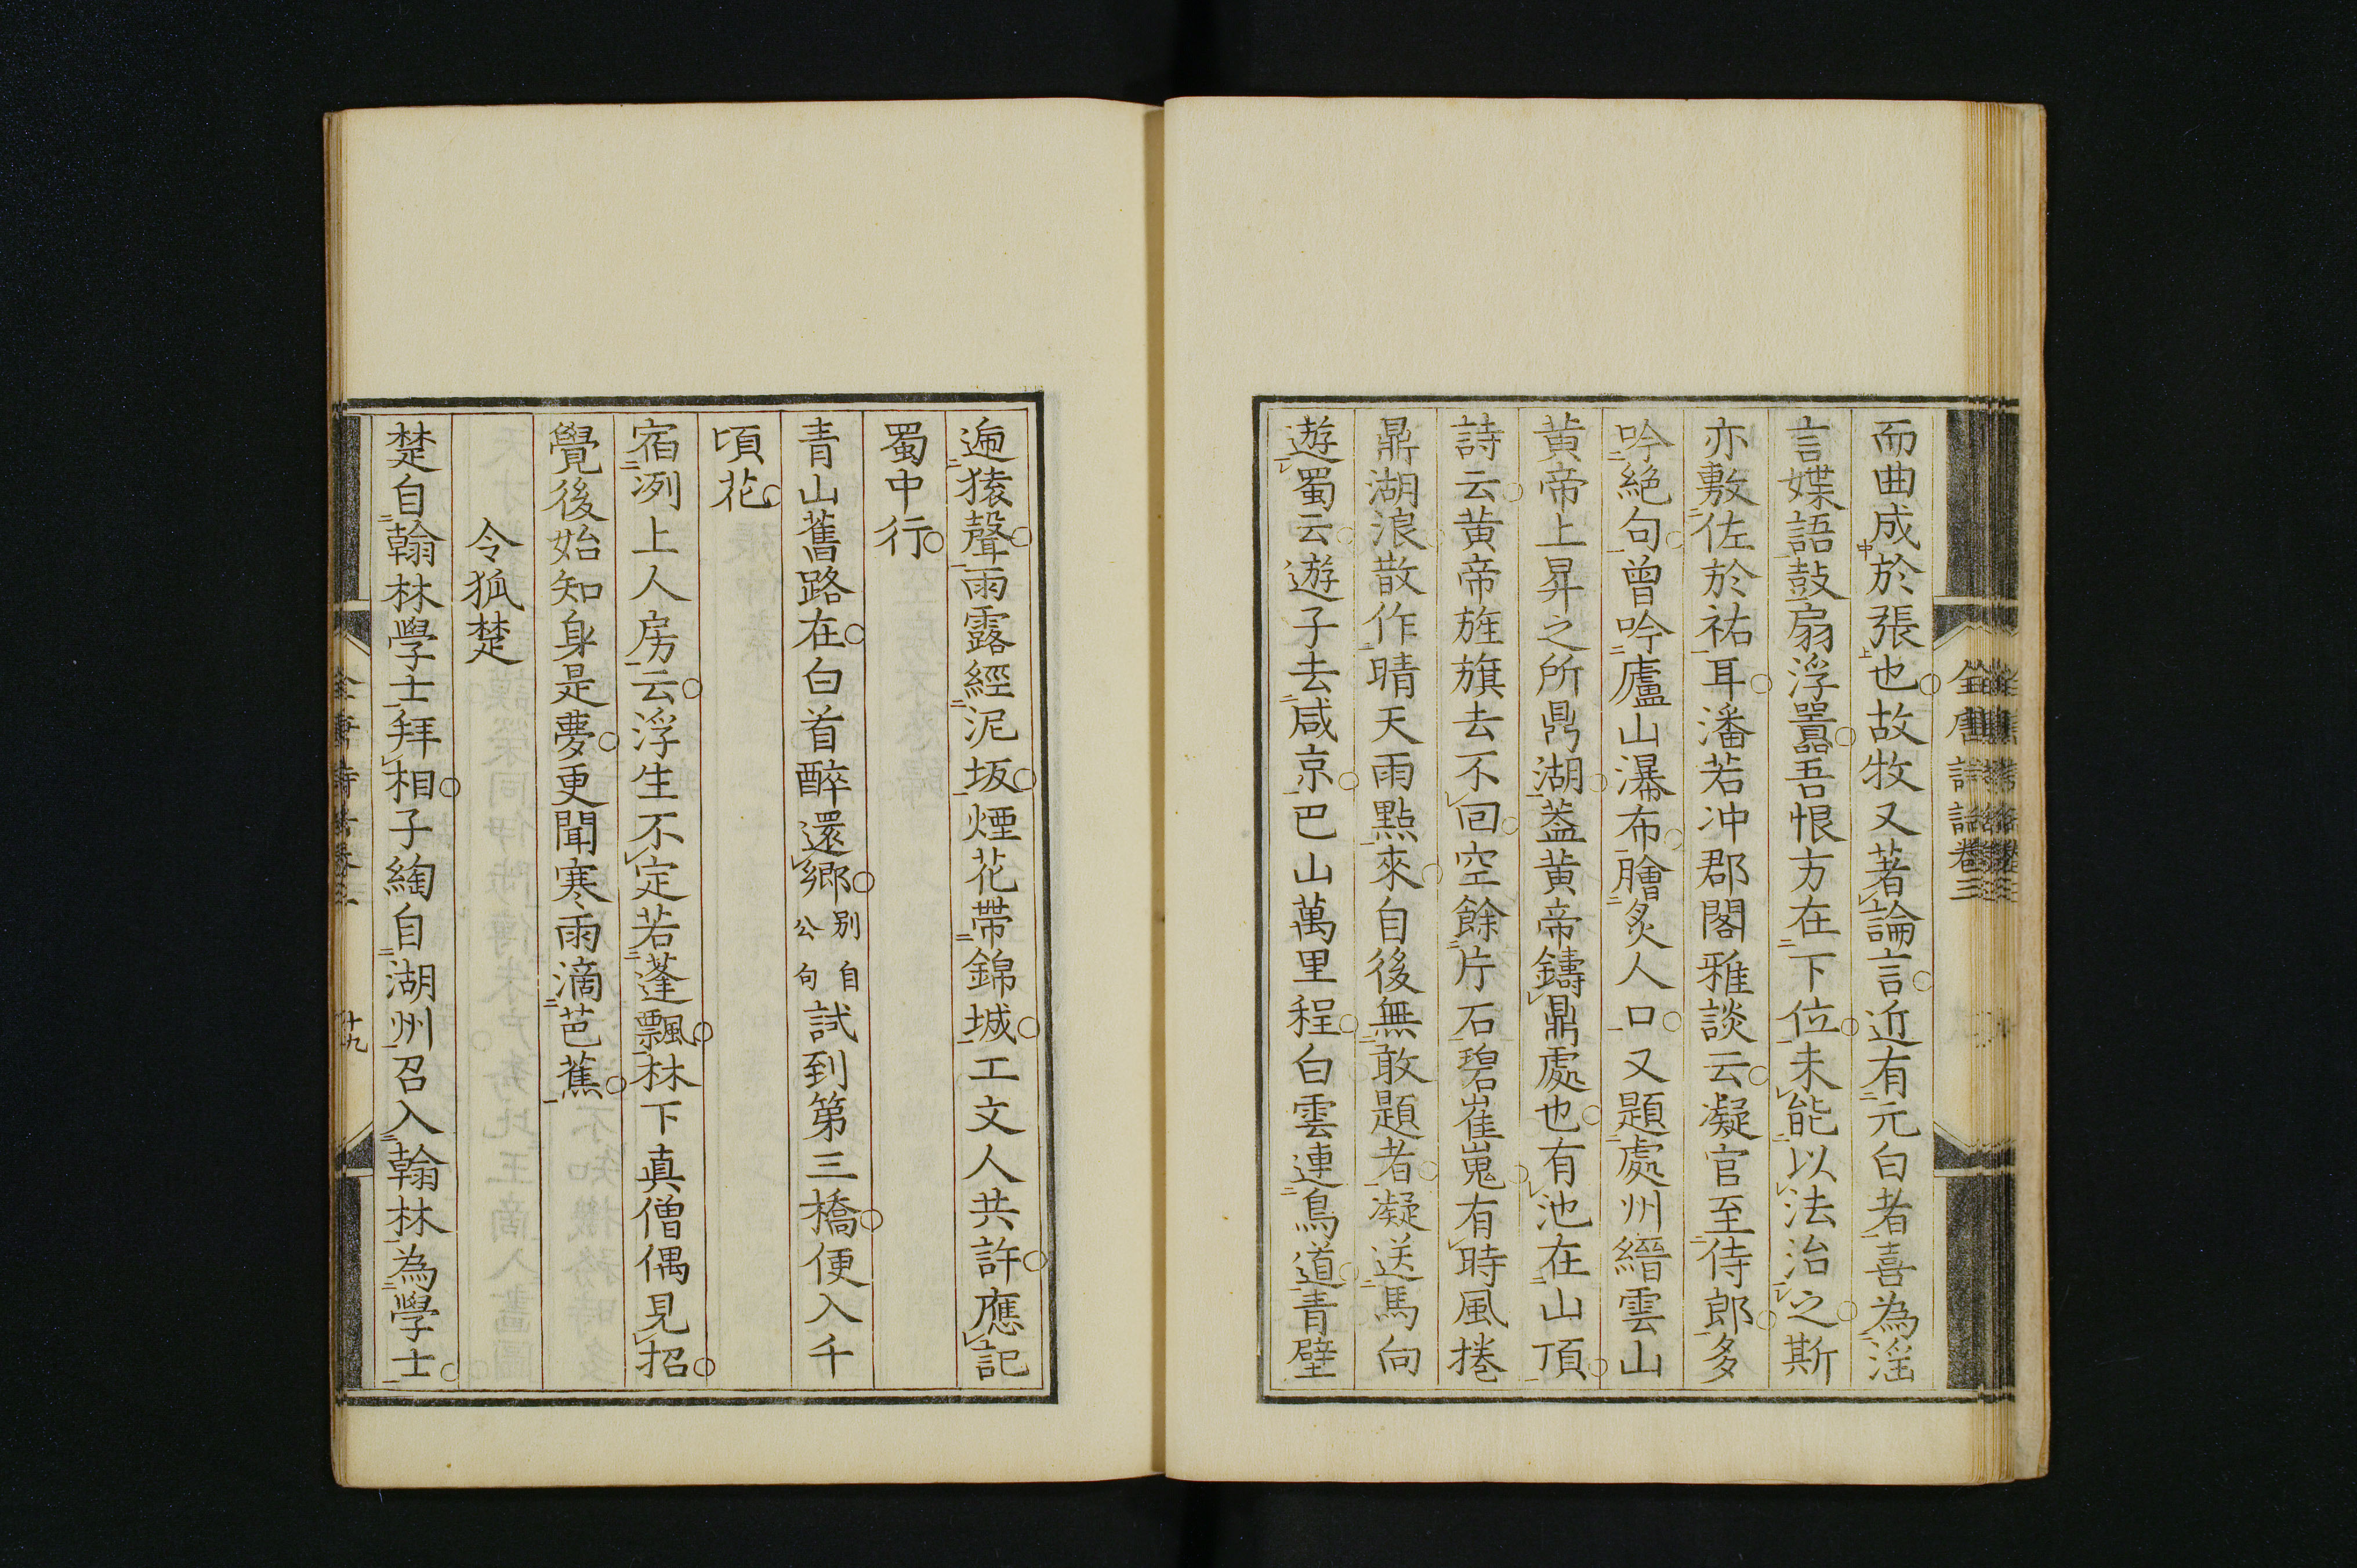 全唐詩話卷三
而曲成於張也故牧又著論言近有元白者喜為淫
言媟語鼓扇浮囂吾恨方在下位未能以法治之斯
亦敷佐於祐耳潘若冲郡閣雅談云凝官至侍郎多
吟絶句曾吟廬山瀑布膾炙人口又題處州縉雲山
黄帝上昇之所鼎湖蓋黄帝鑄鼎處也有池在山頂
詩云黄帝旌旗去不回空餘片石碧崔嵬有時風捲
鼎湖浪散作晴天雨點來自後無敢題者凝送馬向
遊蜀云遊子去咸京巴山萬里程白雲連鳥道青壁
遍猿聲雨露經泥坂煙花帶錦城工文人共許應記
蜀中行
青山舊路在白首醉還鄉別自公句試到第三橋便入千
頃花
宿洌上人房云浮生不定若蓬飄林下真僧偶見招
覺後始知身是夢更聞寒雨滴芭蕉
令狐楚
楚自翰林學士拜相子綯自湖州召入翰林為學士
全唐詩話卷三
十九